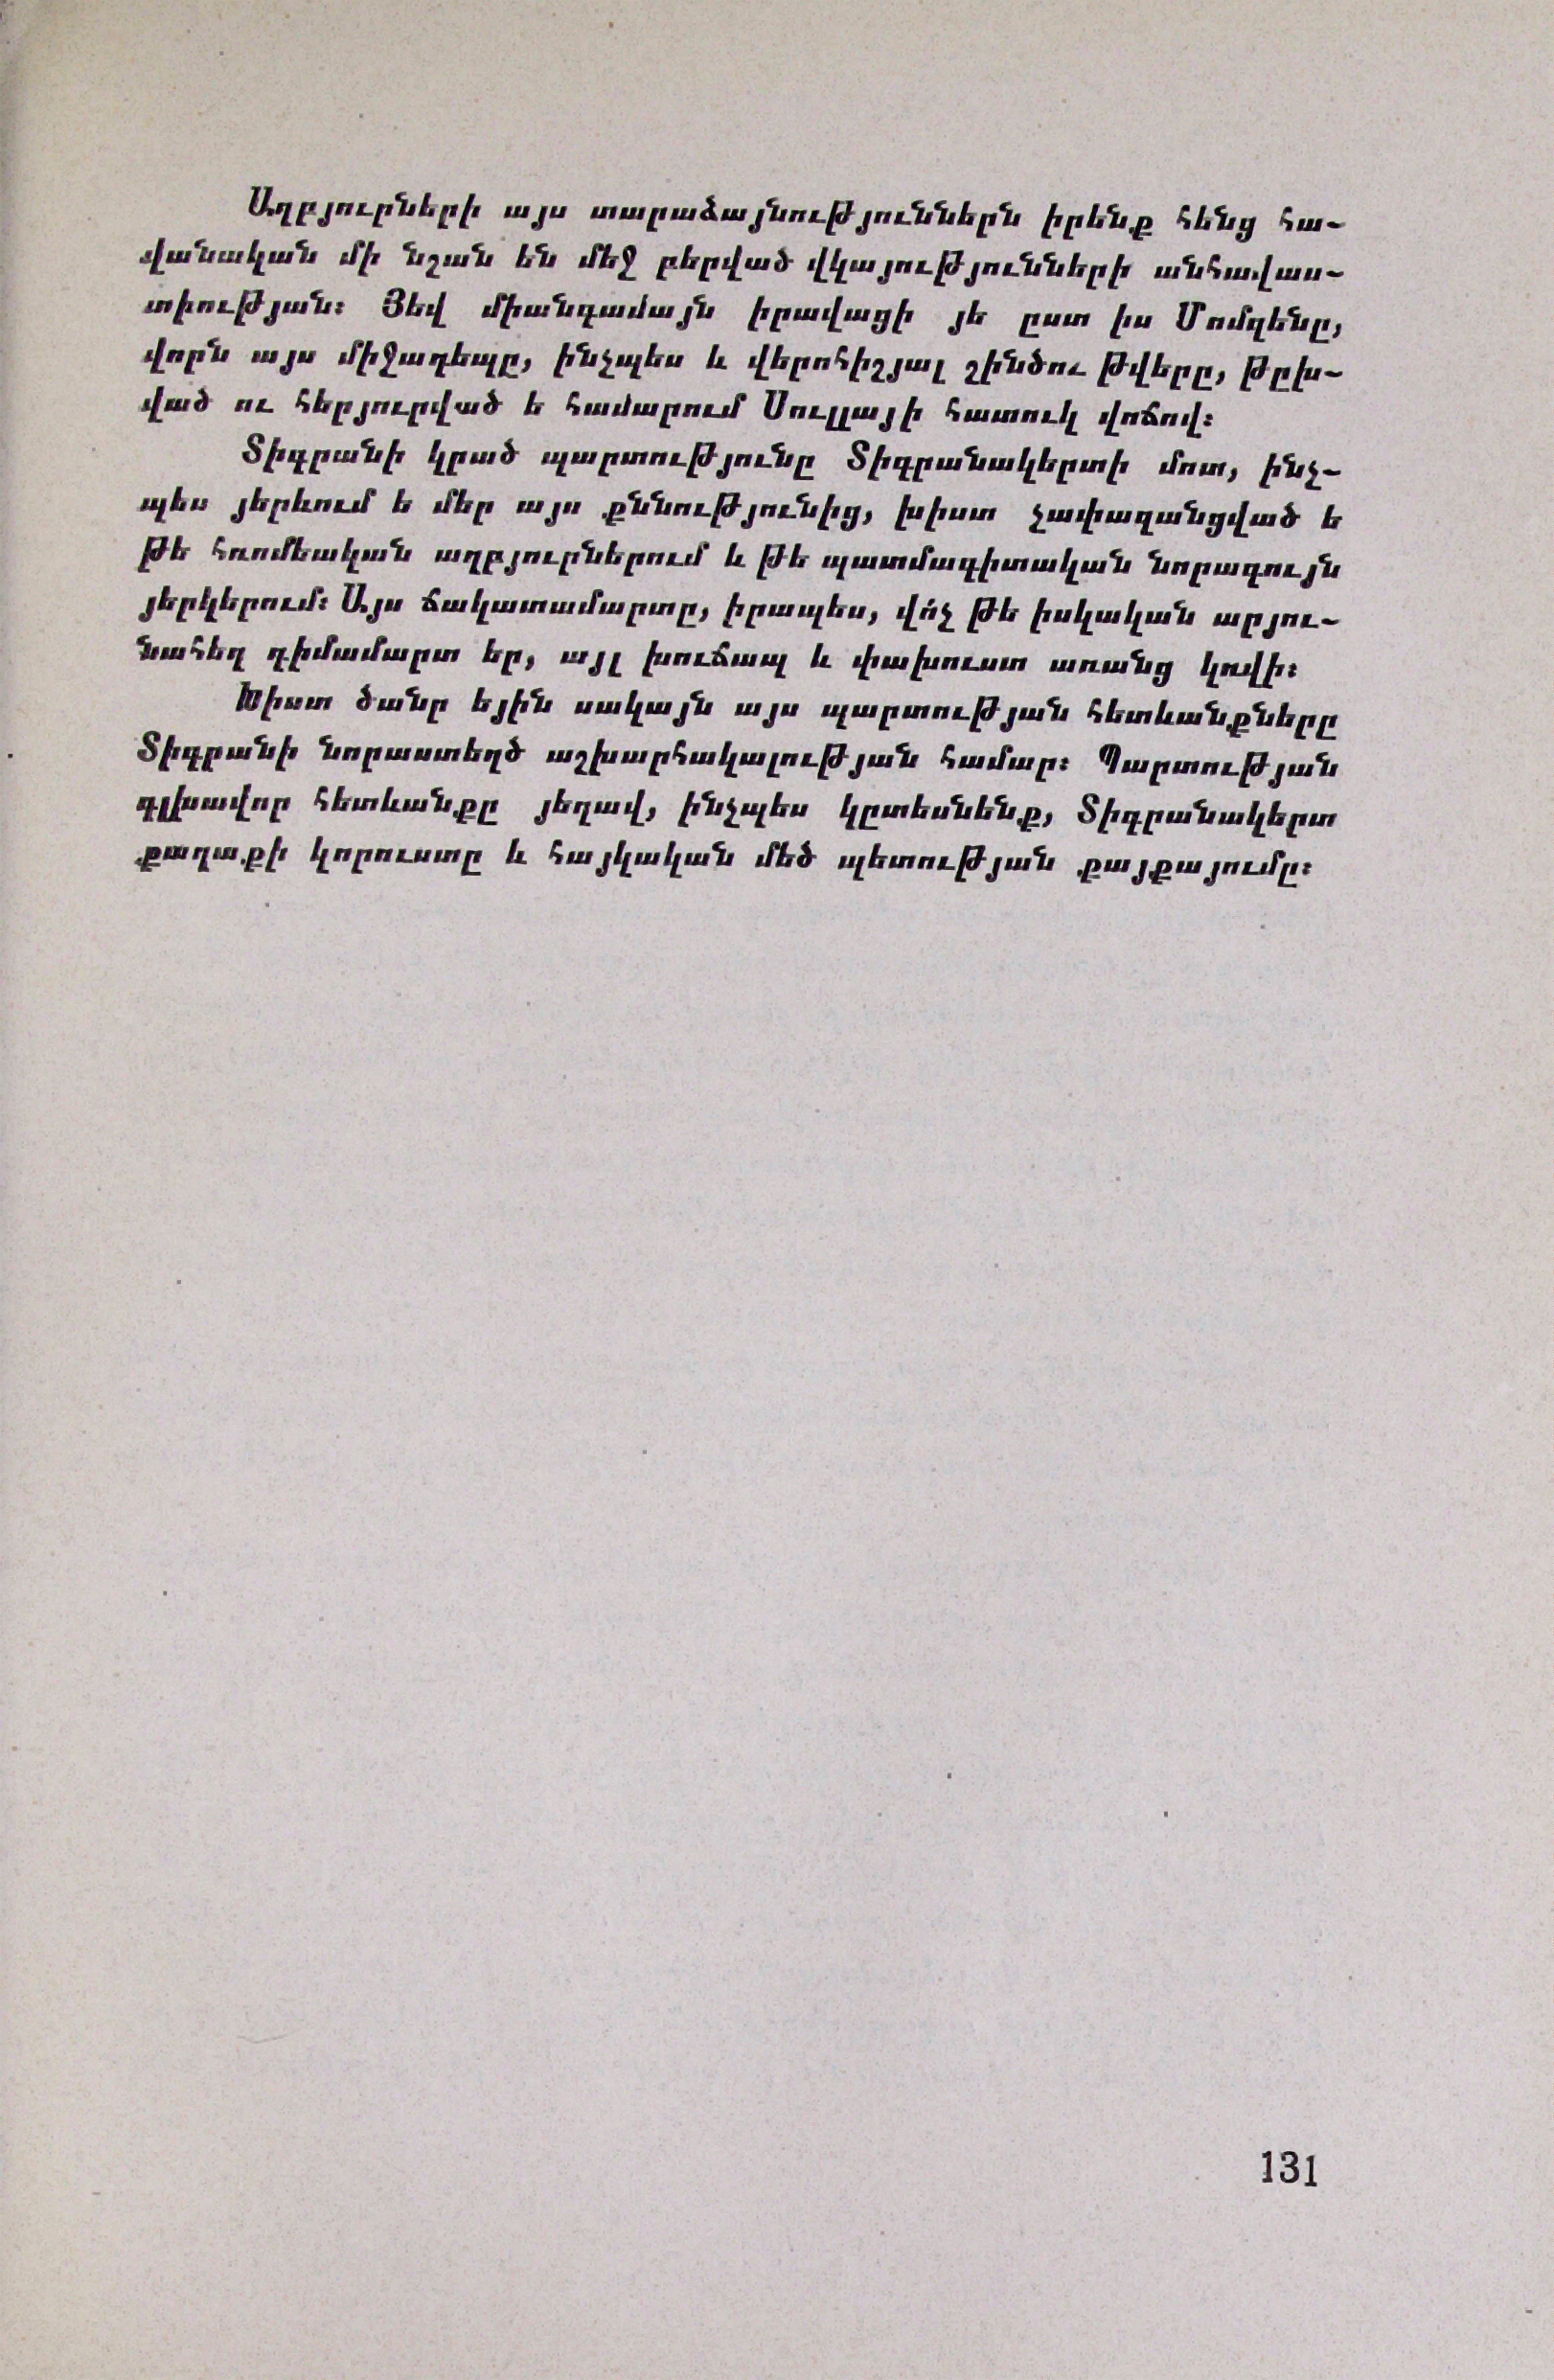 Աղբյուրների այս տարաձայնություններն իրենք հենց հա-
վանական մի նշան են մեջ բերված վկայությունների անհավաս-
տիության։ Յեվ միանգամայն իրավացի յե ըստ իս Մոմզենը,
վորն այս միջադեպը, ինչպես և վերոհիշյալ շինծու թվերը, թըխ-
ված ու հերյուրված ե համարում Սուլլայի հատուկ վոճով։
Տիգրանի կրած պարտությունը Տիգրանակերտի մոտ, ինչ-
պես յերևում ե մեր այս քննությունից, խիստ չափազանցված ե
թե հռոմեական աղբյուրներում և թե պատմագիտական նորագույն
յերկերում։ Այս ճակատամարտը, իրապես, վո՛չ թե իսկական արյու-
նահեղ դիմամարտ եր, այլ խուճապ և փախուստ առանց կռվի։
Խիստ ծանր եյին սակայն այս պարտության հետևանքները
Տիգրանի նորաստեղծ աշխարհակալության համար։ Պարտության
գլխավոր հետևանքը յեղավ, ինչպես կըտեսնենք, Տիգրանակերտ
քաղաքի կորուստը և հայկական մեծ պետության քայքայումը։
131